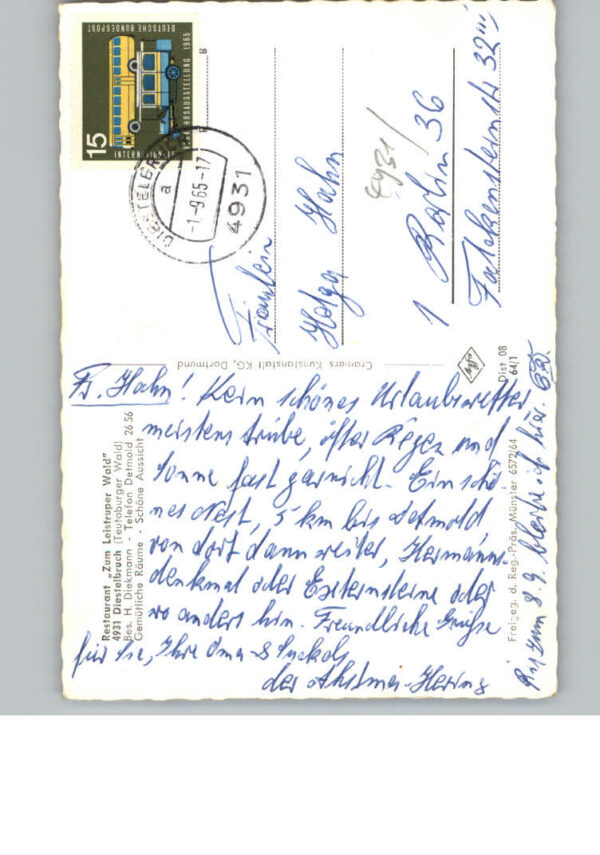 DEUTSCHE BUNDESPOST
INTERNATIONALE VERKEHRSAUSSTELLUNG 1965
15
DIESTELBRUCH
a
-1.-9.65-17
4931
B
Fräulein
Helga Hahn
4931/
1 Berlin 36
Falckensteinstr 32III
Cramers Kunstanstalt KG, Dortmund
Dist 08
64/1
Freigeg. d. Reg.-Präs. Münster 6572/64
Restaurant „Zum Leistruper Wald"
4931 Diestelbruch (Teutoburger Wald)
Bes. H. Diekmann - Telefon Detmold 26 56
Gemütliche Räume - Schöne Aussicht
Fr. Hahn! Kein schönes Urlaubswetter,
meistens trübe, öfter Regen und
Sonne fast garnicht. Ein schö-
nes Nest, 5 km bis Detmold
von dort dann weiter, Hermanns-
denkmal oder Externsteine oder
wo anders hin. Freundliche Grüße
für Sie, Ihre Oma
der
Bis zum 8.9. bleibe ich hier.